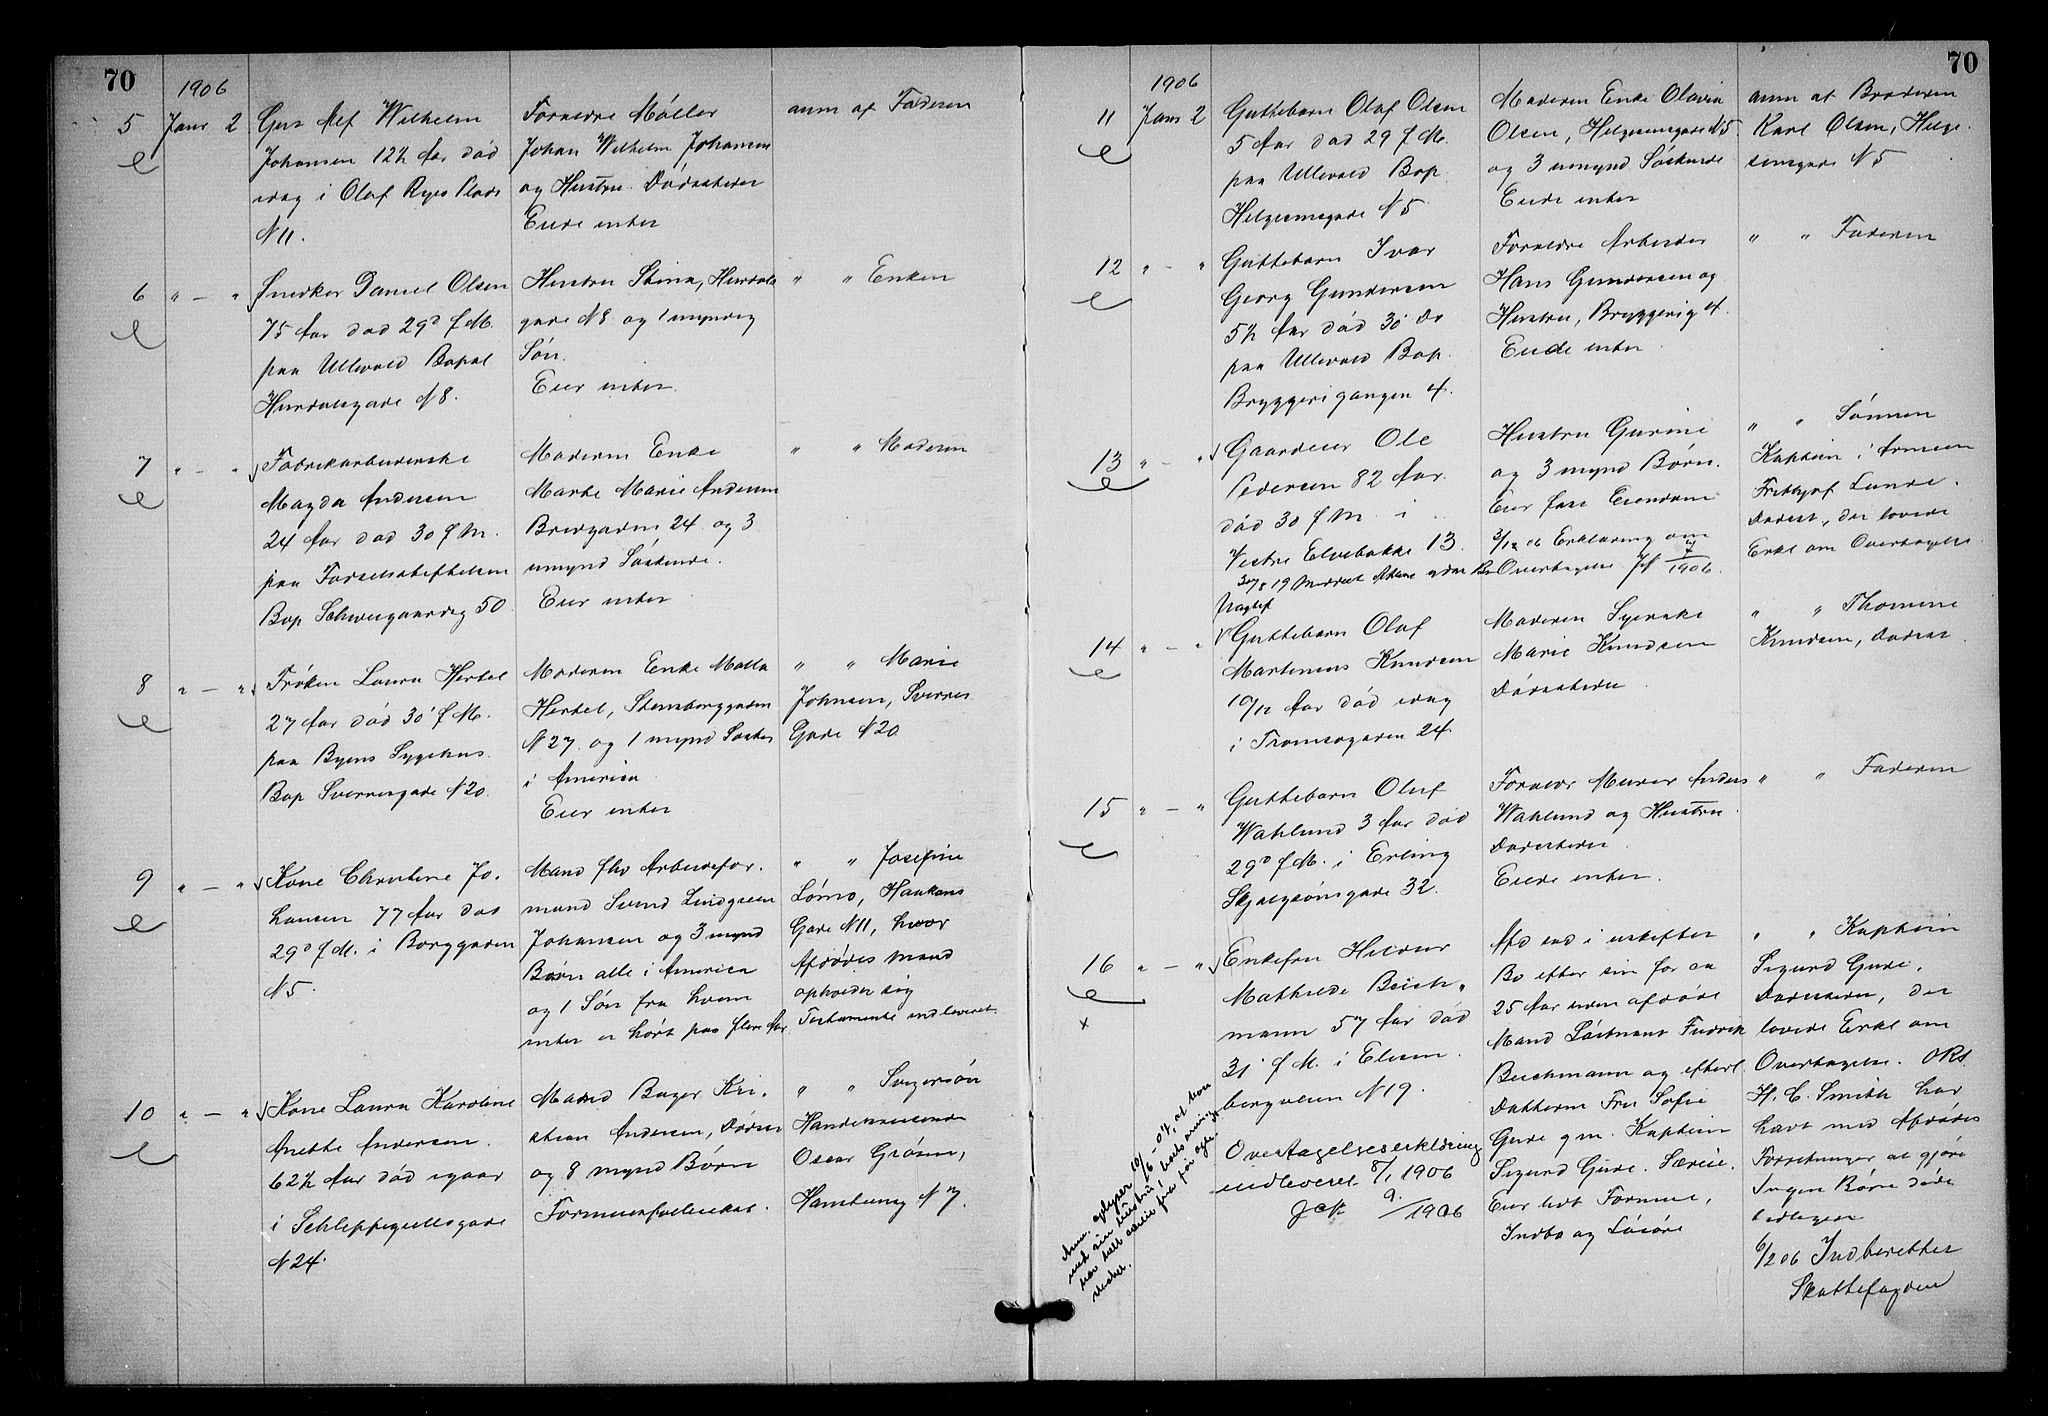 70
1906
5 Janr 2 Gut Alf Wilhelm
Johansen 12½ Aar død
idag i Olaf Ryes Plads
N 11.
Forældre Møller
Johan Wilhelm Johansen
og Hustru. Dødsstedet
Eiede intet
anm af Faderen
6 " — " Snedker Daniel Olsen
75 Aar død 29d f M.
paa Ullevold Bopæl
Hurdalsgade N 8.
Hustru Stina, Hurdals
gade N 8 og 1 myndig
Søn.
Eier intet.
" " Enken
7 " — " Fabrikarbeiderske
Magda Andersen
24 Aar død 30 f M.
paa Fødselsstiftelsen
Bop Schweigaardsg 50
Moderen Enke
Marte Marie Andersen
Bredgaden 24 og 3
umynd Søskende.
Eier intet
" " Moderen
8 " — " Frøken Laura Hertel
27 Aar død 30' f M.
paa Byens Sygehus
Bop Sverresgade N 20.
Moderen Enke Malla
Hertel, Stensberggaden
N 27 og 1 mynd Søster
i America
Eier intet
" " Marie
Johnsen, Sverres
Gade N 20
9 " — " Kone Christine Jo-
hansen 77 Aar død
29d f M. i Borggaden
N 5.
Mand fhv Arbeidsfor-
mand Svend Lindgreen
Johansen og 3 mynd
Børn alle i America
og 1 Søn fra hvem
intet er hørt paa flere Aar
" " Josefine
Lømo, Haakons
Gade N 11, hvor
Afdødes Mand
opholder sig
Testamente indleveret
10 " — " Kone Laura Karoline
Anette Andersen
62½ Aar død igaar
i Schleppegrellsgade
N 24.
Mand Bager Kri-
stian Andersen, Dødsst
og 8 mynd Børn
Formuesfællesskab.
" " Svigersøn
Handelsreisende
Oscar Grøsen,
Hamburg N 7.
70
1906
11 Janr 2 Guttebarn Olaf Olsen
5 Aar død 29 f M.
paa Ullevold Bop.
Helgesensgade N 5
Moderen Enke Olavia
Olsen, Helgesensgade N 5
og 3 umynd Søskende
Eiede intet
anm af Broderen
Karl Olsen, Helge-
sensgade N 5
12 " — " Guttebarn Ivar
Georg Gundersen
5½ Aar død 30' Do
paa Ullevold Bop.
Bryggerigangen 4.
Forældre Arbeider
Hans Gundersen og
Hustru, Bryggerig 4.
Eiede intet.
" " Faderen
13 " — " Gaardeier Ole
Pedersen 82 Aar.
død 30 f M. i
Vestre Elvebakke 13.
Hustru Gurine
og 3 mynd Børn.
Eier fast Eiendom
3/1 06 Erklæring om
Overtagelse
1906.
" " Sønnen
Kaptein i Armeen
Frithjof Lunde.
Dødsst, der lovede
Erkl om Overtagelse
14 " — " Guttebarn Olaf
Martinius Knudsen
10/12 Aar død idag
i Tromsøgaden 24.
Moderen Syerske
Marie Knudsen
Dødsstedet
" " Thomine
Knudsen, Dødsst
15 " — " Guttebarn Oluf
Wahlund 3 Aar død
29d f M. i Erling
Skjalgsønsgade 32.
Forældr Murer Anders
Wahlund og Hustru
Dødsstedet
Eiede intet.
" " Faderen
16 " — " Enkefru Hildur
Mathilde Beich-
mann 57 Aar død
31 f M. i Elisen-
bergveien N 19.
Overtagelseserklæring
indleveret 8/1 1906
9/1 1906
Afd sad i uskiftet
Bo efter sin for ca
25 Aar siden afdøde
Mand Løitnant Fredrik
Beichmann og efterl
Datteren Fru Sofie
Gude gm. Kaptein
Sigurd Gude. Særeie.
Eier lidt Formue,
Indbo og Løsøre
" " Kaptein
Sigurd Gude.
Dødsstedet, der
lovede Erkl om
Overtagelse. ORs
H. C. Smith har
havt med Afdødes
Forretninger at gjøre
Ingen Børn døde
tidligere
6/2 06 Indberettet
Skattefogden